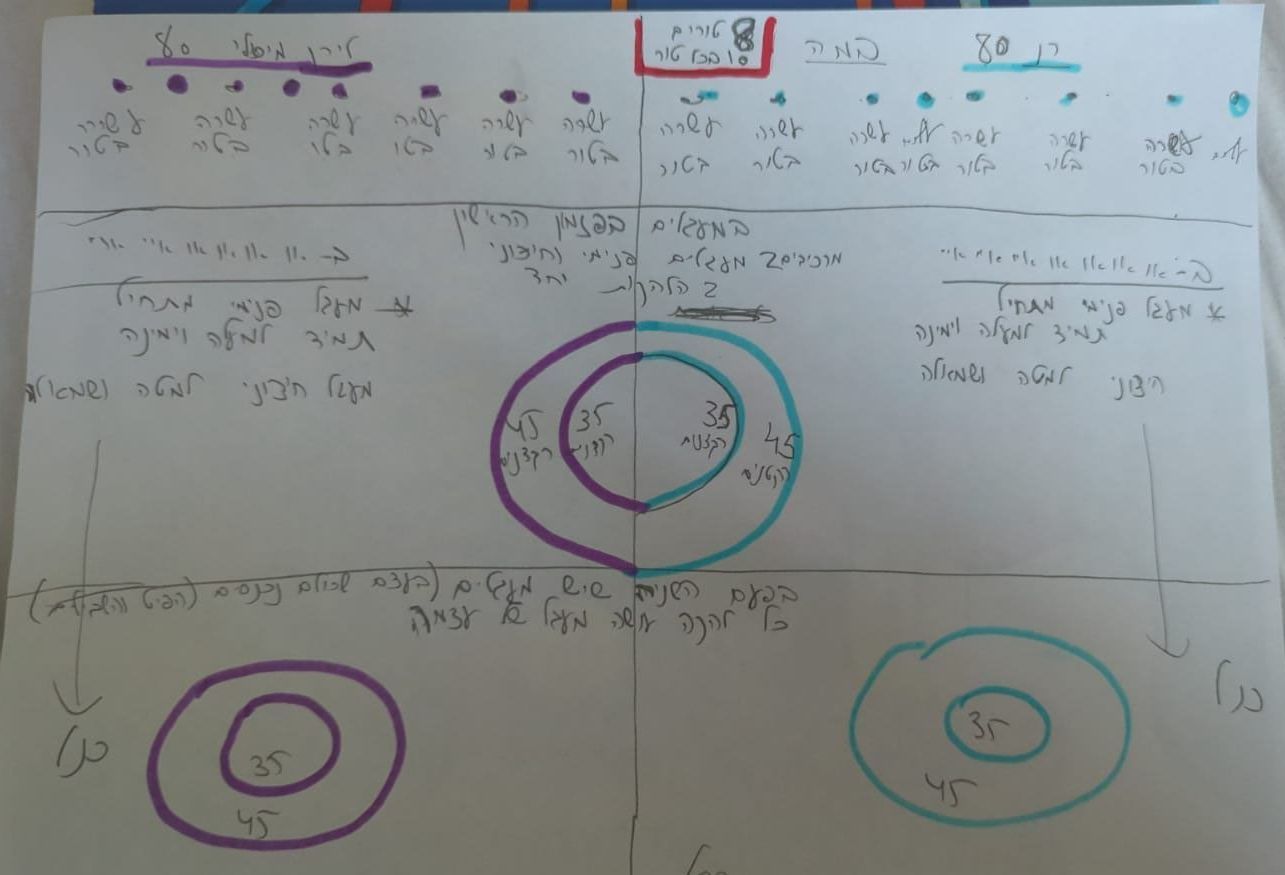 רן 80
במה
8 טורים
10 בכל טור
לירן מיכאלי 80
עשרה בטור
עשרה בטור
עשרה בטור
עשרה בטור
עשרה בטור
עשרה בטור
עשרה בטור
עשרה בטור
עשרה בטור
עשרה בטור
עשרה בטור
עשרה בטור
עשרה בטור
במעגלים בפזמון הראשון
מרכיבים 2 מעגלים פנימי וחיצוני
2 הלהקות יחד
* מעגל פנימי מתחיל
תמיד למעלה וימינה
חיצוני למטה ושמאלה
* מעגל פנימי מתחיל
תמיד למעלה וימינה
מעגל חיצוני למטה ושמאלה
45
35
35
45
הקטנים
בפעם השניה שיש מעגלים (בעצם שכולם נכנסים
כל להקה עושה מעגל של עצמה
כנ"ל
35
45
כנ"ל
35
45